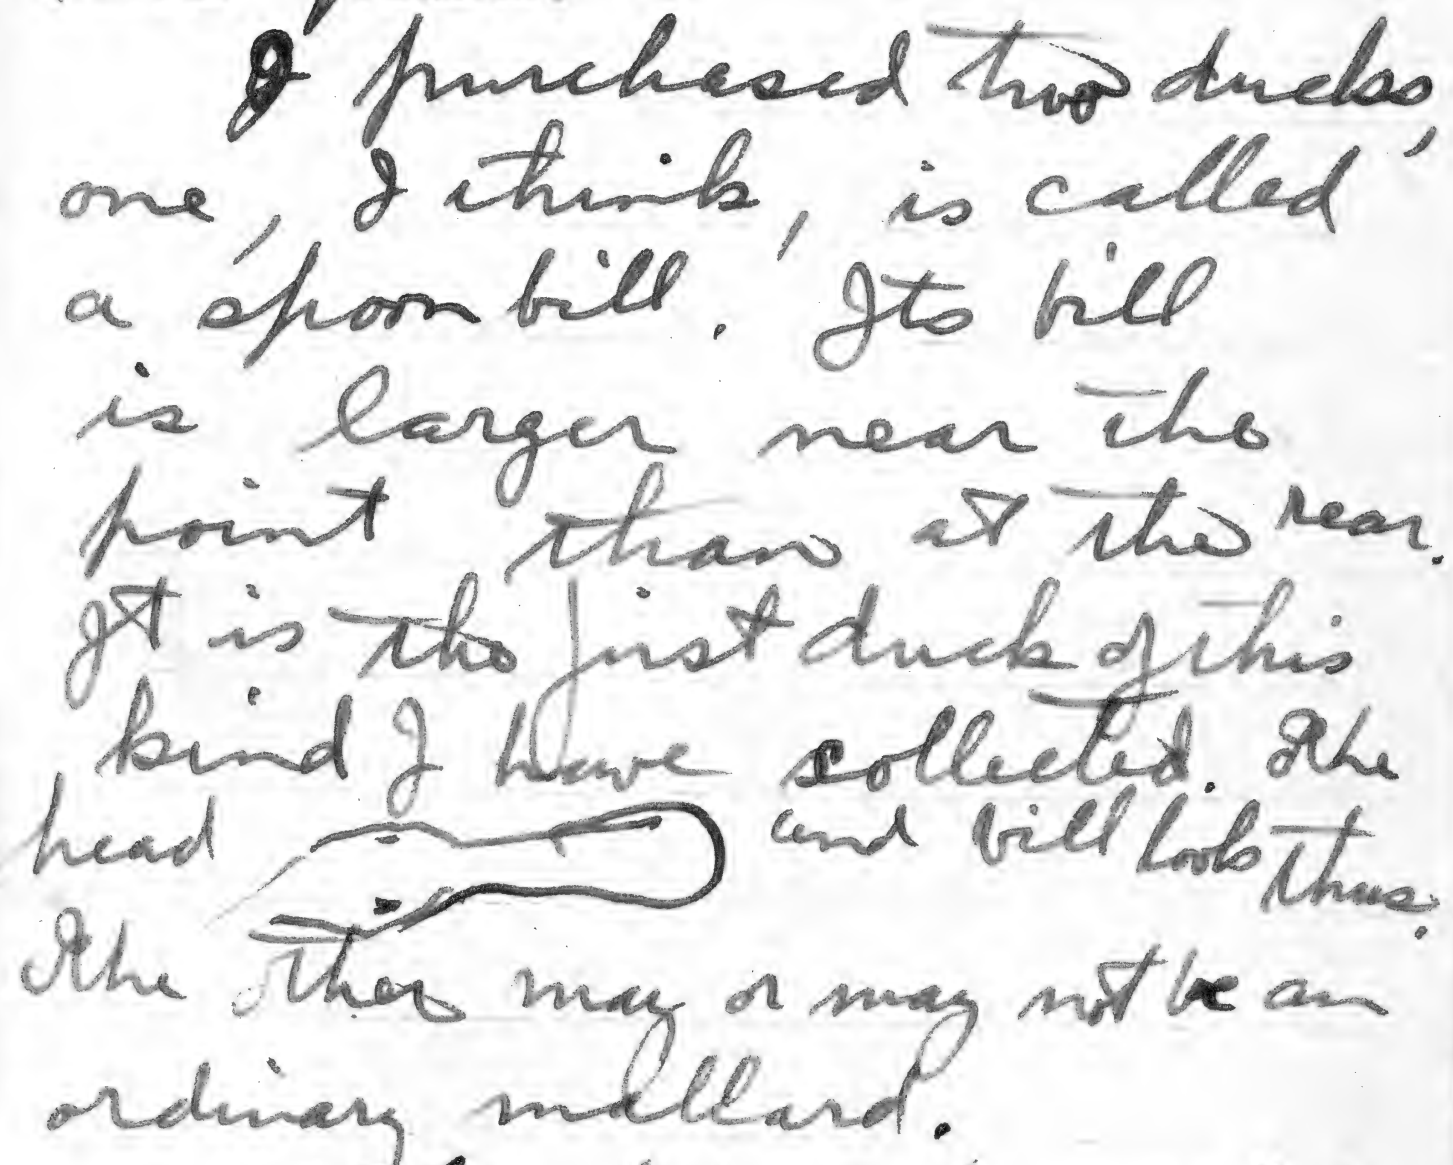 I purchased two ducks,
one, I think, is called
a spoon bill. Its bill
is larger near the
point than at the rear.
It is the first duck of this
kind I have collected. The
head and bill looks thus.
The other may or may not be an
ordinary mallard.